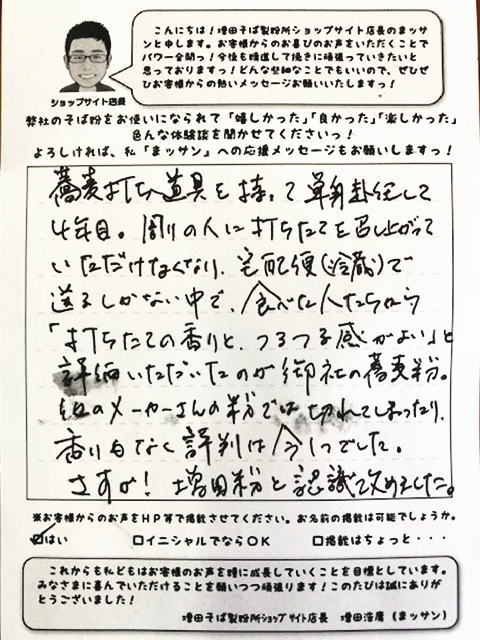 こんにちは！増田そば製粉所ショップサイト店長のまッサ
ンと申します。お客様からのお喜びのお声をいただくことで
パワー全開っ！今後も精進して挽きに頑張っていきたいと
思っておりますっ！どんな些細なことでもいいので、ぜひぜ
ひお客様からの熱いメッセージお願いいたしますっ！
ショップサイト店長
弊社のそば粉をお使いになられて「嬉しかった」「良かった」「楽しかった」
色んな体験談を聞かせてくださいっ！
よろしければ、私「まッサン」への応援メッセージもお願いしますっ！
蕎麦打ち道具を持って単身赴任して
4年目。周りの人に打ちたてを召し上がって
いただけなくなり、宅配便(冷蔵)で
送るしかない中で、食べた人たちから
「打ちたての香りと、つるつる感がよい」と
評価いただいたのが御社の蕎麦粉。
他のメーカーさんの粉では切れてしまったり、
香りもなく評判は今1つでした。
さすが！増田粉と認識を改めました。
※お客様からのお声をHP等で掲載させてください。お名前の掲載は可能でしょうか。
☑はい □イニシャルでならOK □掲載はちょっと・・・
これからも私どもはお客様のお声を糧に成長していくことを目標としています。
みなさまに喜んでいただけることを願いつつ頑張ります！このたびは誠にありが
とうございました！
増田そば製粉所ショップサイト店長 増田浩庸(まッサン)